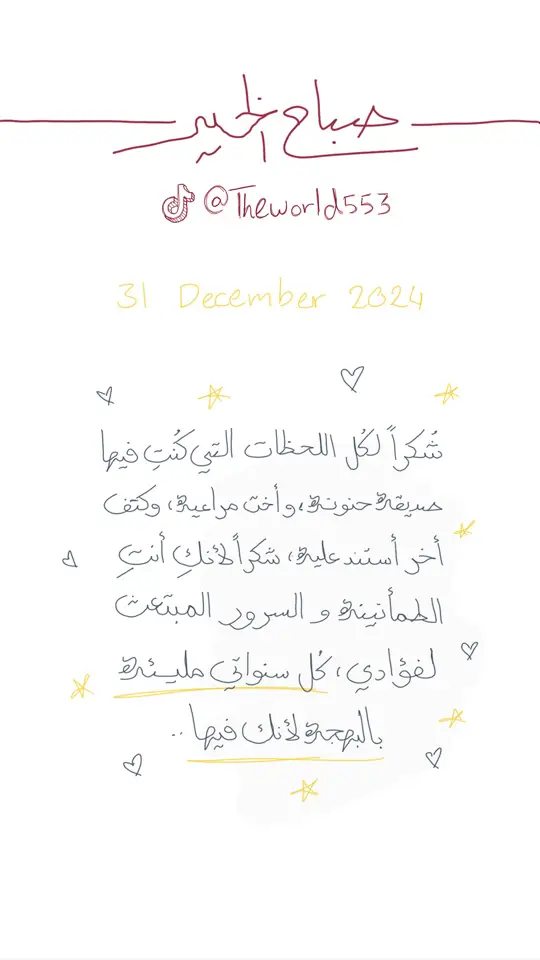 صباح الخير
@Theworld553
31 December 2024
شُكراً لكُل اللحظات التي كُنتِ فيها
صديقة حنونة، وأخت مراعية، وكتف
أخر أستند عليه، شكراً لأنكِ أنتِ
الطمأنينة و السرور المبتعث
لفؤادي، كُل سنواتي مليئة
بالبهجة لأنك فيها ..